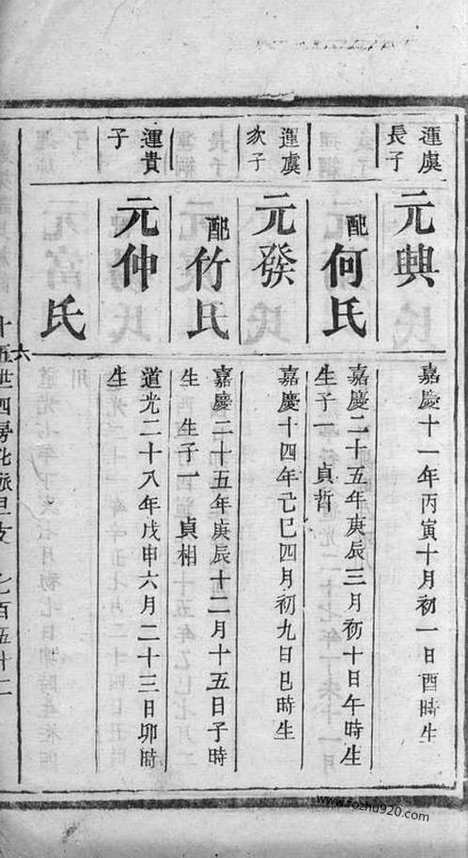 運虞
長子
元興
嘉慶十一年丙寅十月初一日酉時生
配何氏
嘉慶二十五年庚辰三月初十日午時生
生子一 貞哲
運虞
次子
元發
嘉慶十四年己巳四月初九日巳時生
配竹氏
嘉慶二十五年庚辰十二月十五日子時
生 生子一 貞相
運貴
子
元仲
道光二十八年戊申六月二十三日卯時
生
氏
十五世四房
www.fozhu920.com